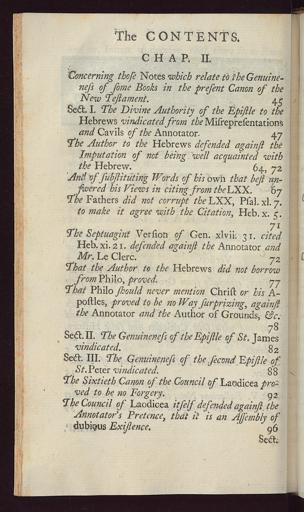 The CONTENTS.
CHAP. II.
Concerning those Notes which relate to the Genuine-
ness of some Books in the present Canon of the
New Testament. 45
Sect. I. The Divine Authority of the Epistle to the
Hebrews vindicated from the Misrepresentations
and Cavils of the Annotator. 47
The Author to the Hebrews defended against the
Imputation of not being well acquainted with
the Hebrew. 64, 72
And of substituting Words of his own that best an-
swered his Views in citing from the LXX. 67
The Fathers did not corrupt the LXX, Psal. xl. 7.
to make it agree with the Citation, Heb. x. 5.
71
The Septuagint Version of Gen. xlviii. 31. cited
Heb. xi. 21. defended against the Annotator and
Mr. Le Clerc. 72
That the Author to the Hebrews did not borrow
from Philo, proved. 77
That Philo should never mention Christ or his A-
postles, proved to be no Way surprizing, against
the Annotator and the Author of Grounds, &c.
78
Sect. II. The Genuineness of the Epistle of St. James
vindicated. 82
Sect. III. The Genuineness of the second Epistle of
St. Peter vindicated. 88
The Sixtieth Canon of the Council of Laodicea pro-
ved to be no Forgery. 92
The Council of Laodicea itself defended against the
Annotator's Pretence, that it is an Assembly of
dubious Existence. 96
Sect.